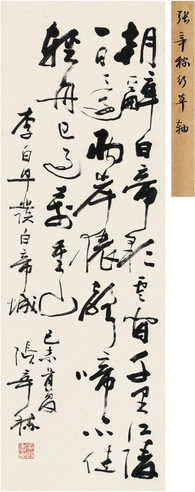 張辛稼行草軸
朝辭白帝彩雲間千里江陵
一日還兩岸猿聲啼不住
輕舟已過萬重山
李白早發白帝城
己未首夏
張辛稼